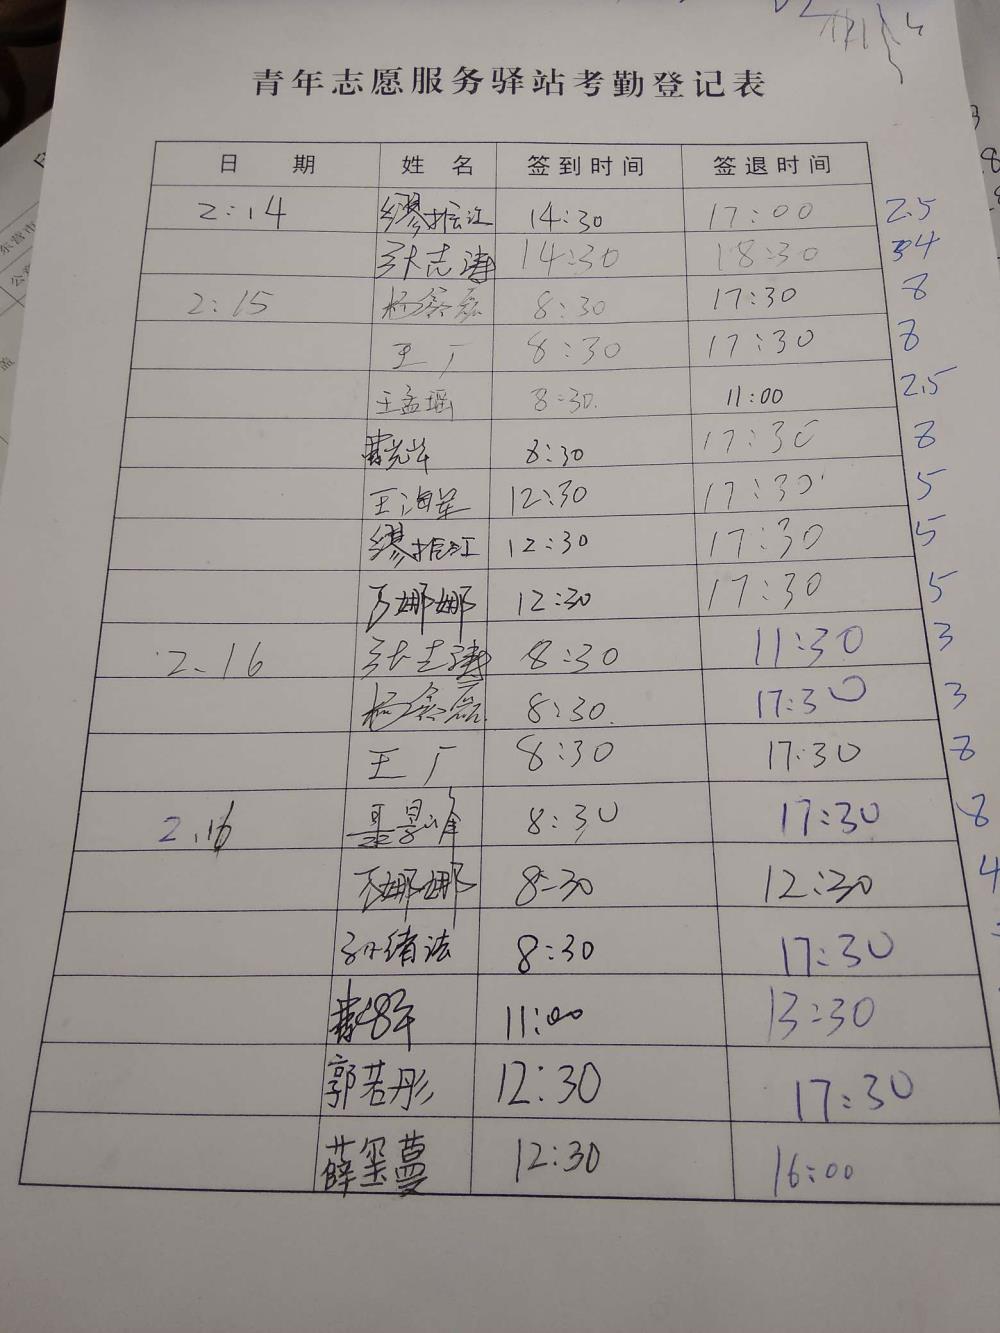 青年志愿服务驿站考勤登记表
日 期 姓 名 签到时间 签退时间
2:14 缪振江 14:30 17:00 2.5
张志涛 14:30 18:30 4
2:15 杨鑫磊 8:30 17:30 8
王广 8:30 17:30 8
王孟瑶 8:30. 11:00 2.5
8:30 17:30 8
王海军 12:30 17:30 5
缪振江 12:30 17:30 5
娜娜 12:30 17:30 5
2.16 张志涛 8:30 11:30 3
杨鑫磊 8:30. 17:30 3
王广 8:30 17:30 8
2.16 8:30 17:30 8
娜娜 8:30 12:30 4
孙绪法 8:30 17:30
11:00 13:30
郭若彤 12:30 17:30
薛玺蔓 12:30 16:00